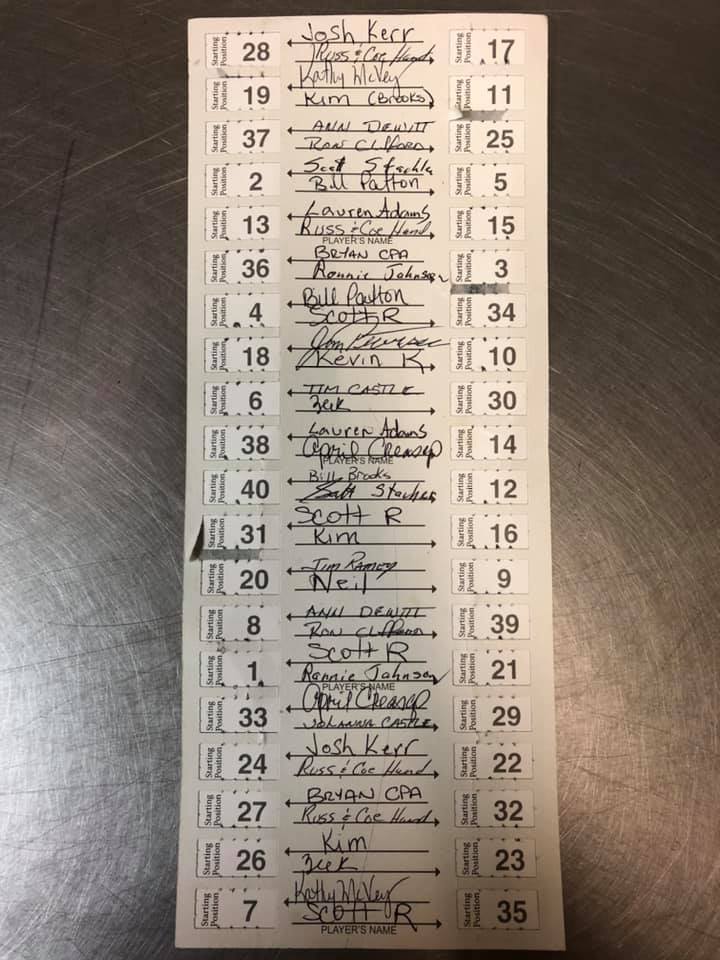 Starting Position 28 Josh Kerr Starting Position 17
Russ & Coe Hand
Starting Position 19 Kathy McVey Starting Position 11
Kim (Brooks)
Starting Position 37 ANN DEWITT Starting Position 25
RON CLIFFORD
Starting Position 2 Scott Starkler Starting Position 5
Bill Patton
Starting Position 13 Lauren Adams Starting Position 15
Russ & Coe Hand
PLAYER'S NAME
Starting Position 36 BRYAN CPA Starting Position 3
Ronnie Johnson
Starting Position 4 Bill Patton Starting Position 34
Scott R
Starting Position 18 Starting Position 10
Kevin K
Starting Position 6 TIM CASTLE Starting Position 30
Zeek
Starting Position 38 Lauren Adams Starting Position 14
April Creasap
PLAYER'S NAME
Starting Position 40 Bill Brooks Starting Position 12
Scott
Starting Position 31 Scott R Starting Position 16
Kim
Starting Position 20 Jim Ramey Starting Position 9
Neil
Starting Position 8 ANN DEWITT Starting Position 39
RON CLIFFORD
Starting Position 1 Scott R Starting Position 21
Ronnie Johnson
PLAYER'S NAME
Starting Position 33 April Creasap Starting Position 29
JOLANNA CASTLE
Starting Position 24 Josh Kerr Starting Position 22
Russ & Coe Hand
Starting Position 27 BRYAN CPA Starting Position 32
Russ & Coe Hand
Starting Position 26 Kim Starting Position 23
Zeek
Starting Position 7 Kathy McVey Starting Position 35
Scott R
PLAYER'S NAME